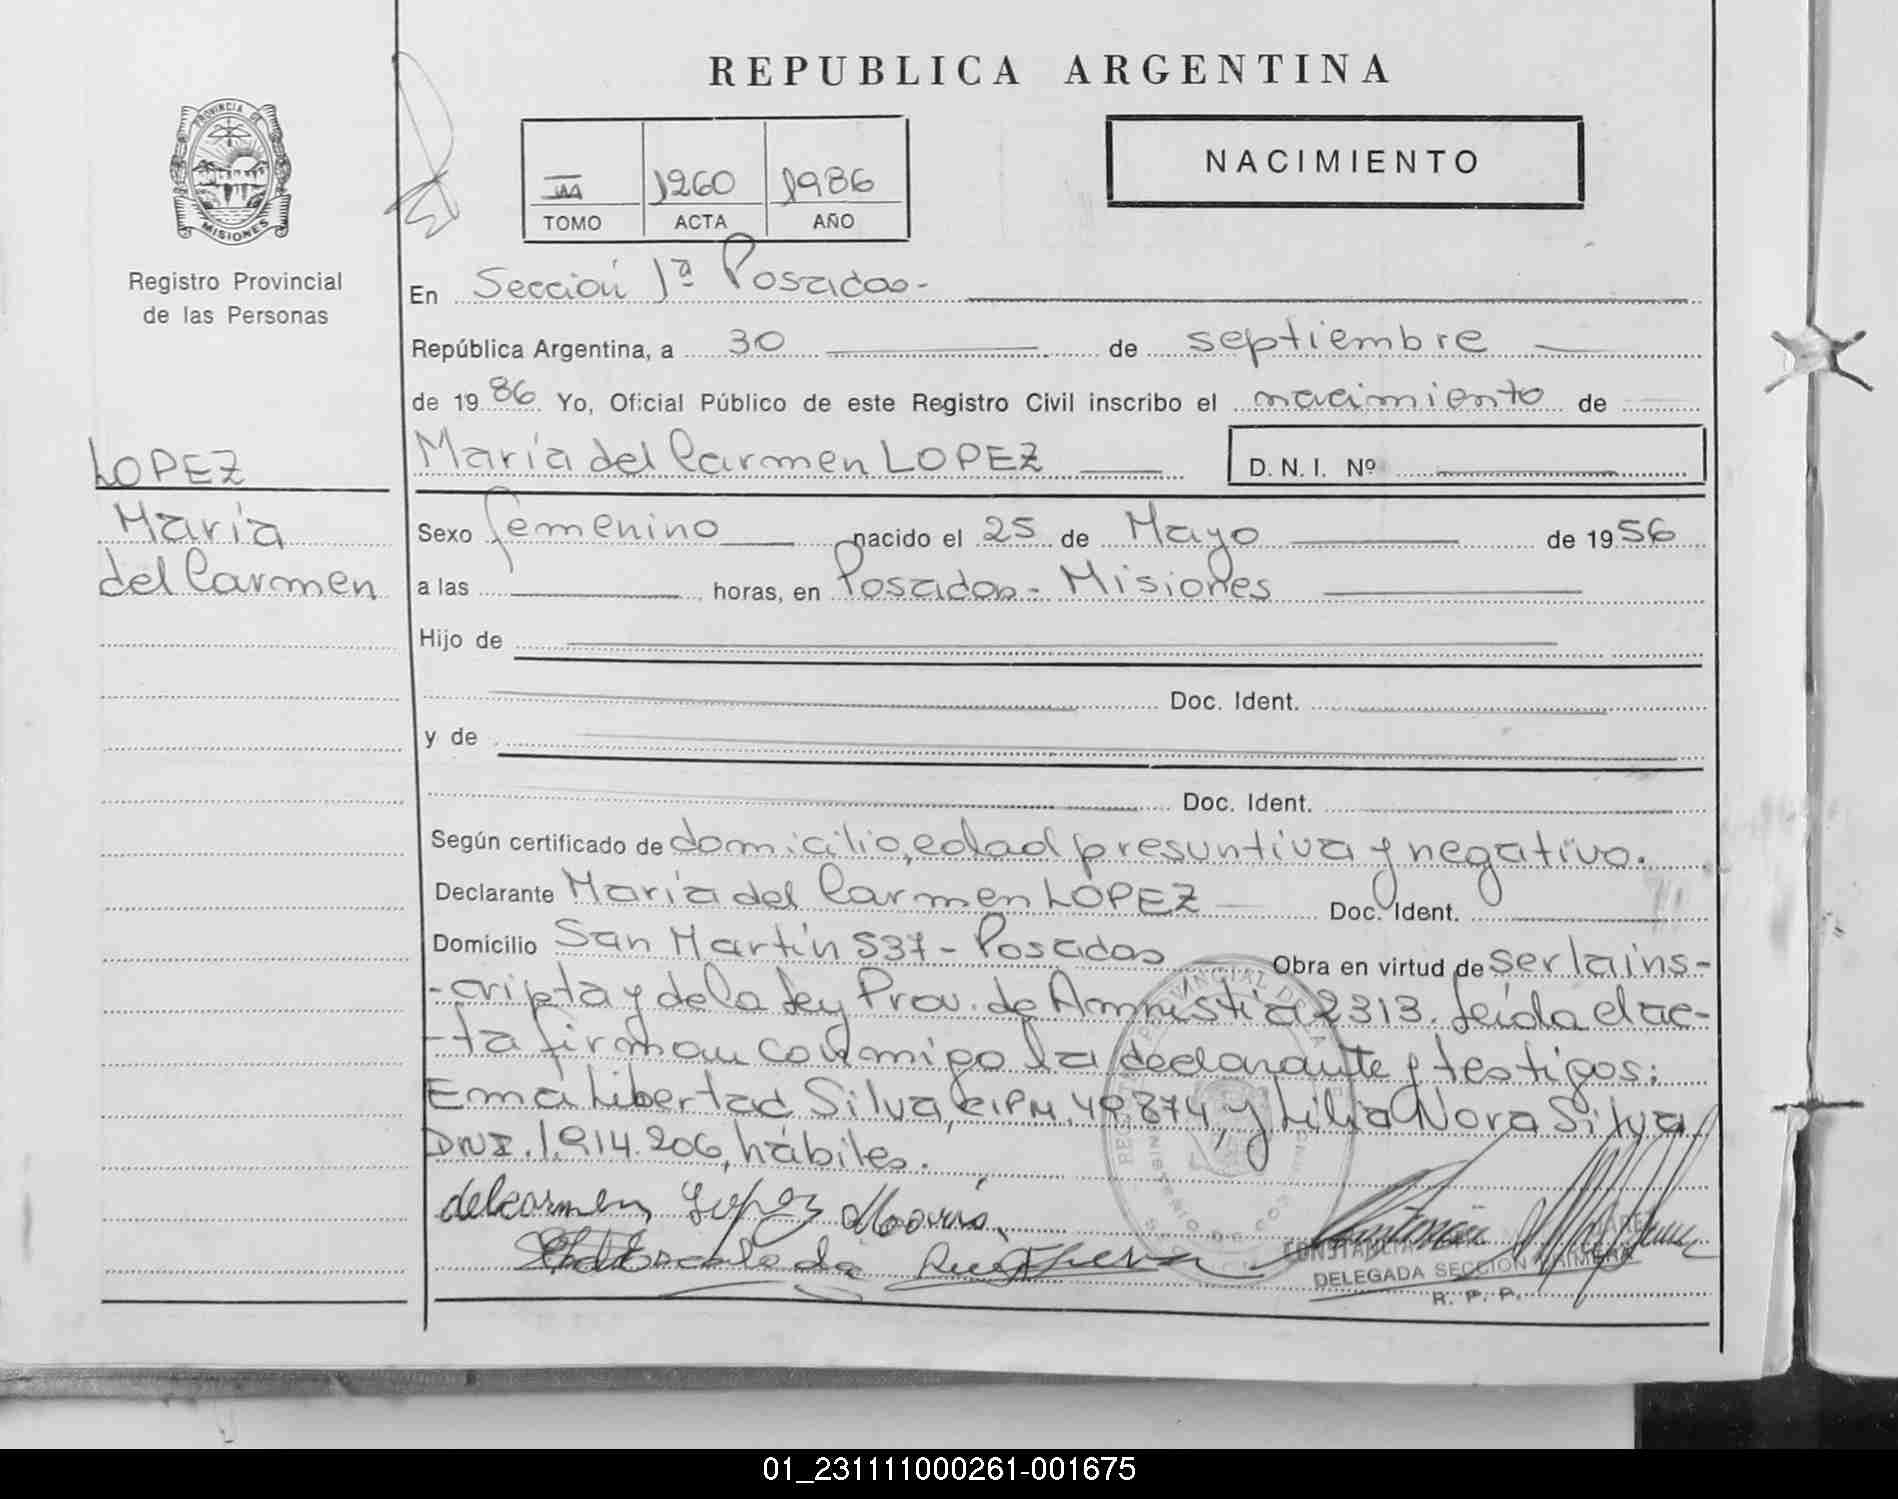 REPUBLICA ARGENTINA
PROVINCIA DE
MISIONES
Registro Provincial
de las Personas
III 1260 1986
TOMO ACTA AÑO
NACIMIENTO
En Sección 1ª Posadas.-
República Argentina, a 30 de septiembre
de 1986 Yo, Oficial Público de este Registro Civil inscribo el nacimiento de
María del Carmen LOPEZ D.N.I. Nº
LOPEZ
María
del Carmen
Sexo femenino nacido el 25 de Mayo de 1956
a las horas, en Posadas - Misiones
Hijo de
Doc. Ident.
y de
Doc. Ident.
Según certificado de domicilio, edad presuntiva y negativo.
Declarante María del Carmen LOPEZ Doc. Ident.
Domicilio San Martín 537 - Posadas Obra en virtud de ser la ins-
-cripta y de la Ley Prov. de Amnistía 2313. Leída el ac-
-ta firman conmigo la declarante y testigos:
Ema Libertad Silva, CIPM. 49.874, y Lilia Nora Silva
DNI. 1.914.206, hábiles.
del carmen Lopez Maria
DELEGADA SECCION PRIMERA
R. P. P.
01_231111000261-001675